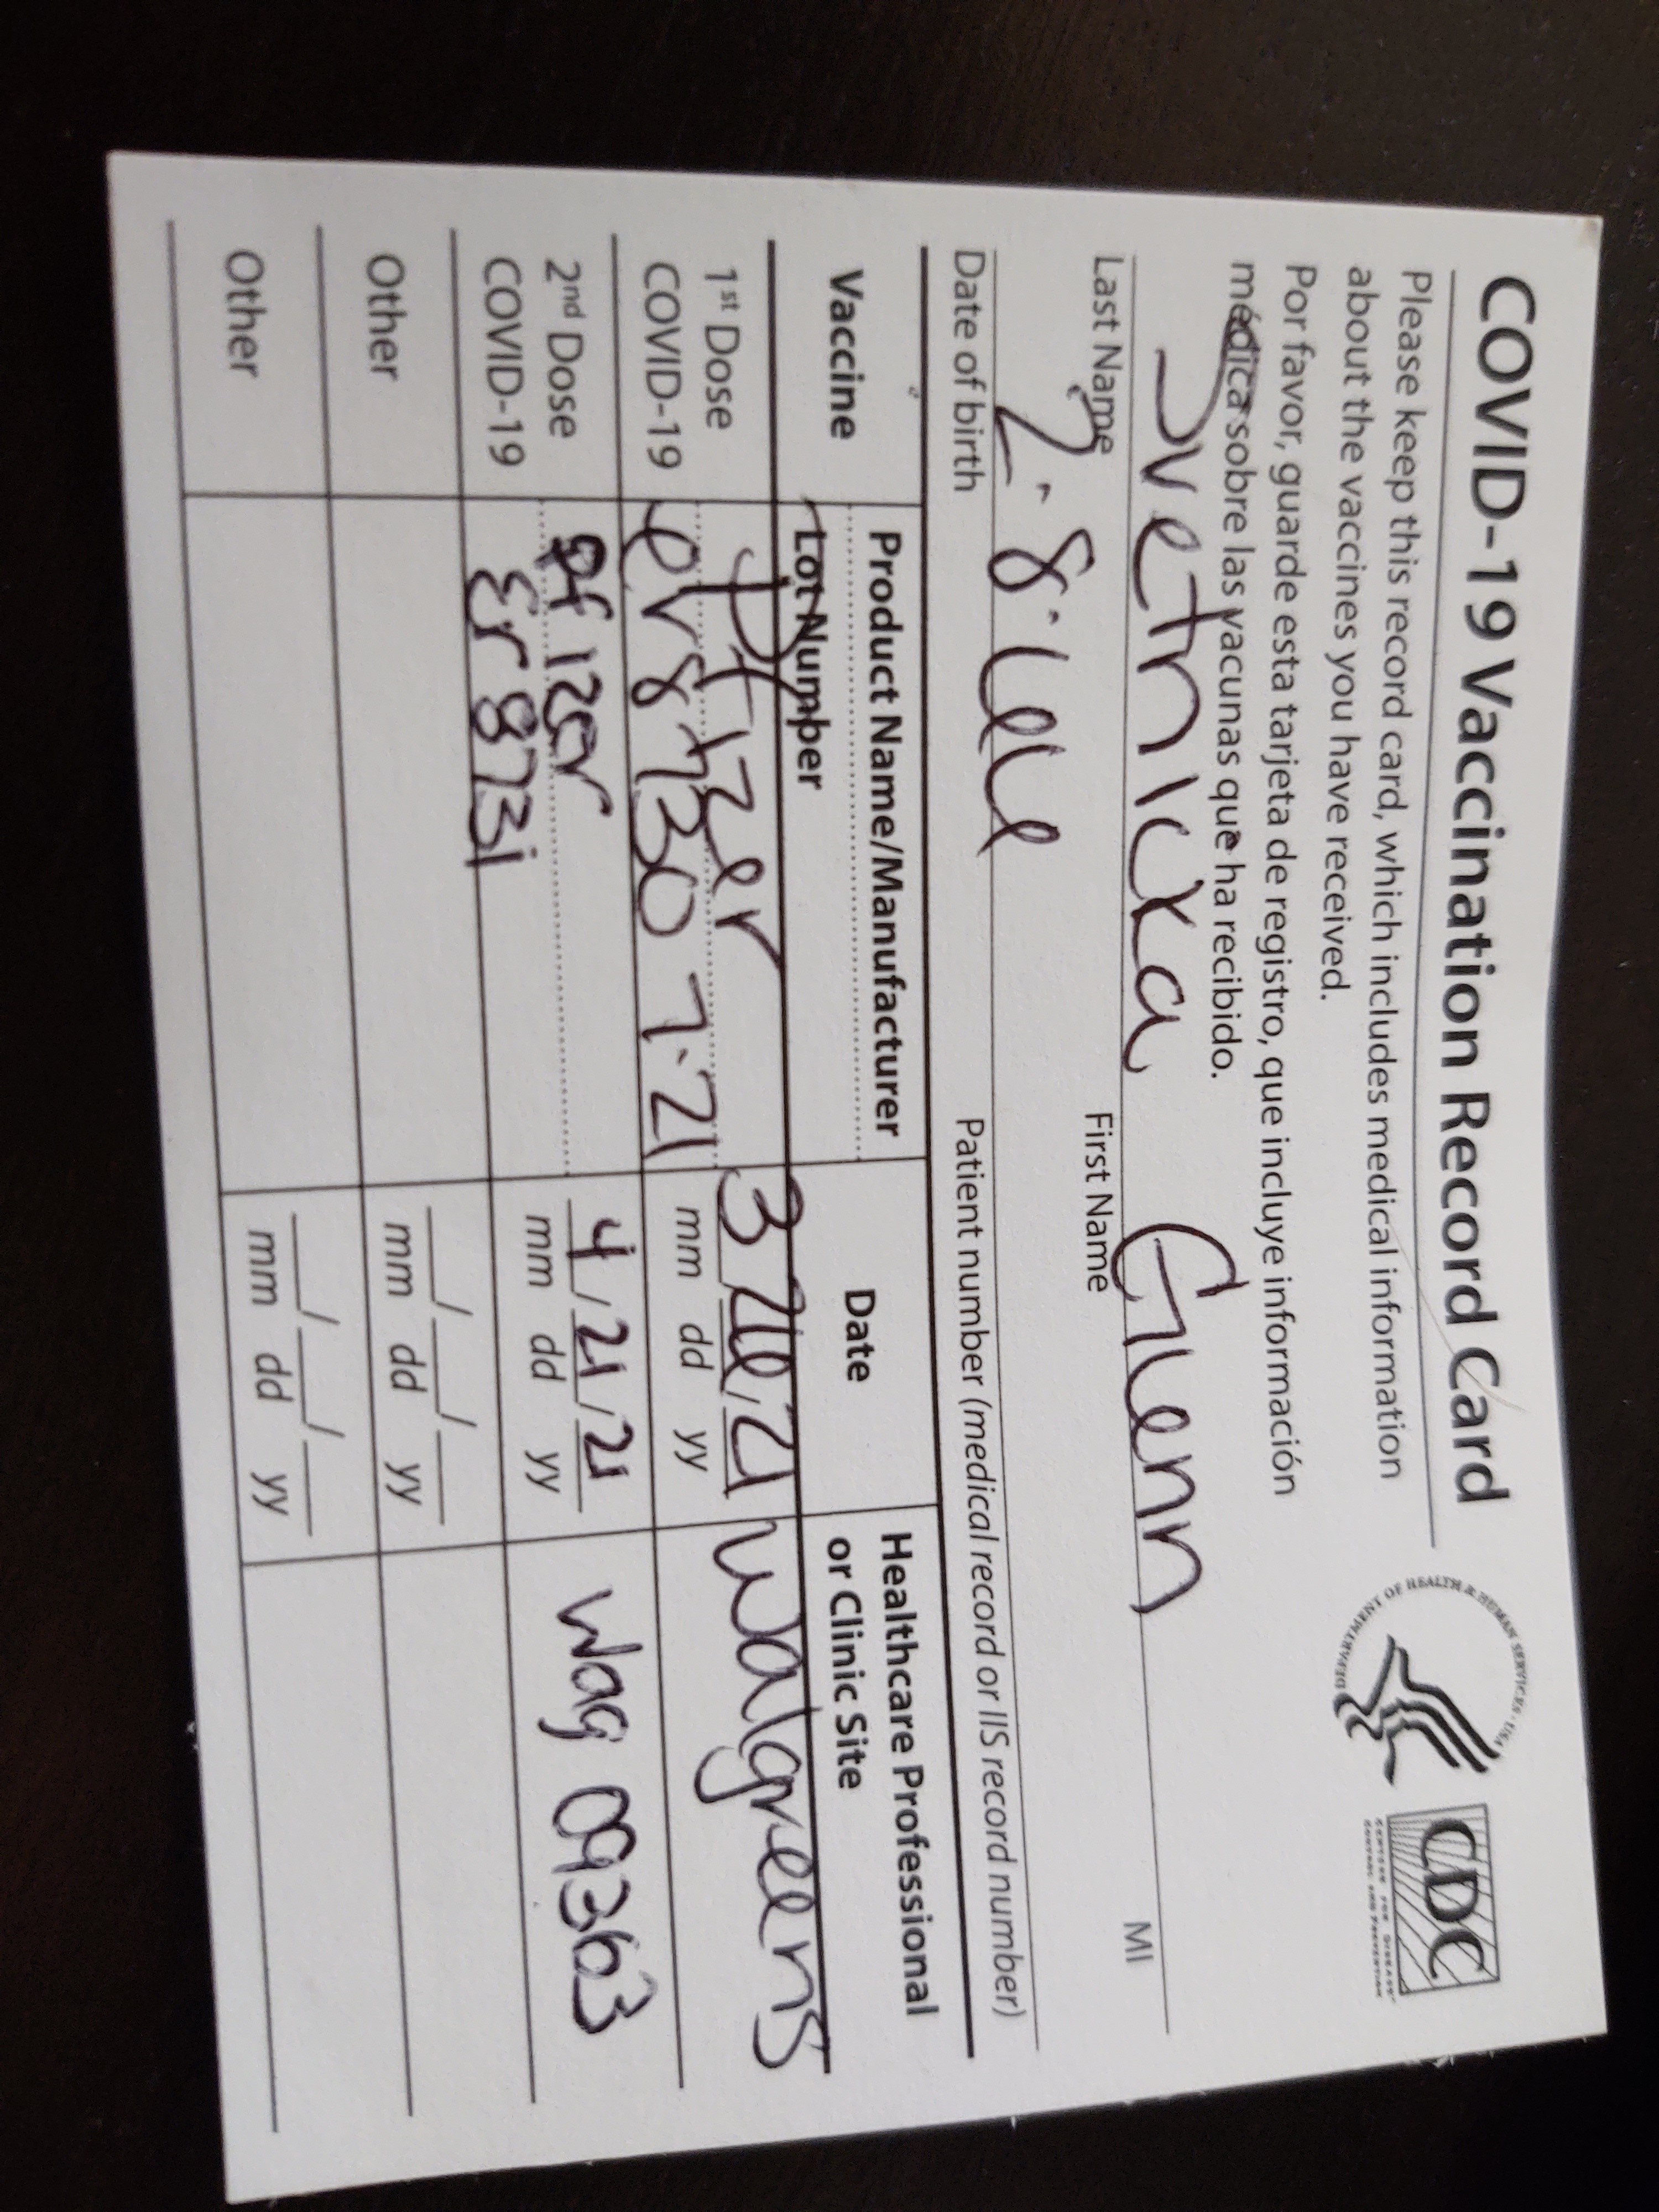 COVID-19 Vaccination Record Card
Please keep this record card, which includes medical information
about the vaccines you have received.
Por favor, guarde esta tarjeta de registro, que incluye información
médica sobre las vacunas que ha recibido.
DEPARTMENT OF HEALTH & HUMAN SERVICES · USA
CDC
CENTERS FOR DISEASE
CONTROL AND PREVENTION
Svetnicka Glenn
Last Name First Name MI
2.8.66
Date of birth Patient number (medical record or IIS record number)
Vaccine Product Name/Manufacturer Date Healthcare Professional
Lot Number or Clinic Site
1st Dose Pfizer 3 26/21 Walgreens
COVID-19 er8730 7.21 mm dd yy
2nd Dose Pfizer 4/21/21 Wag 09363
COVID-19 Er8731 mm dd yy
Other __/__/__
mm dd yy
Other __/__/__
mm dd yy